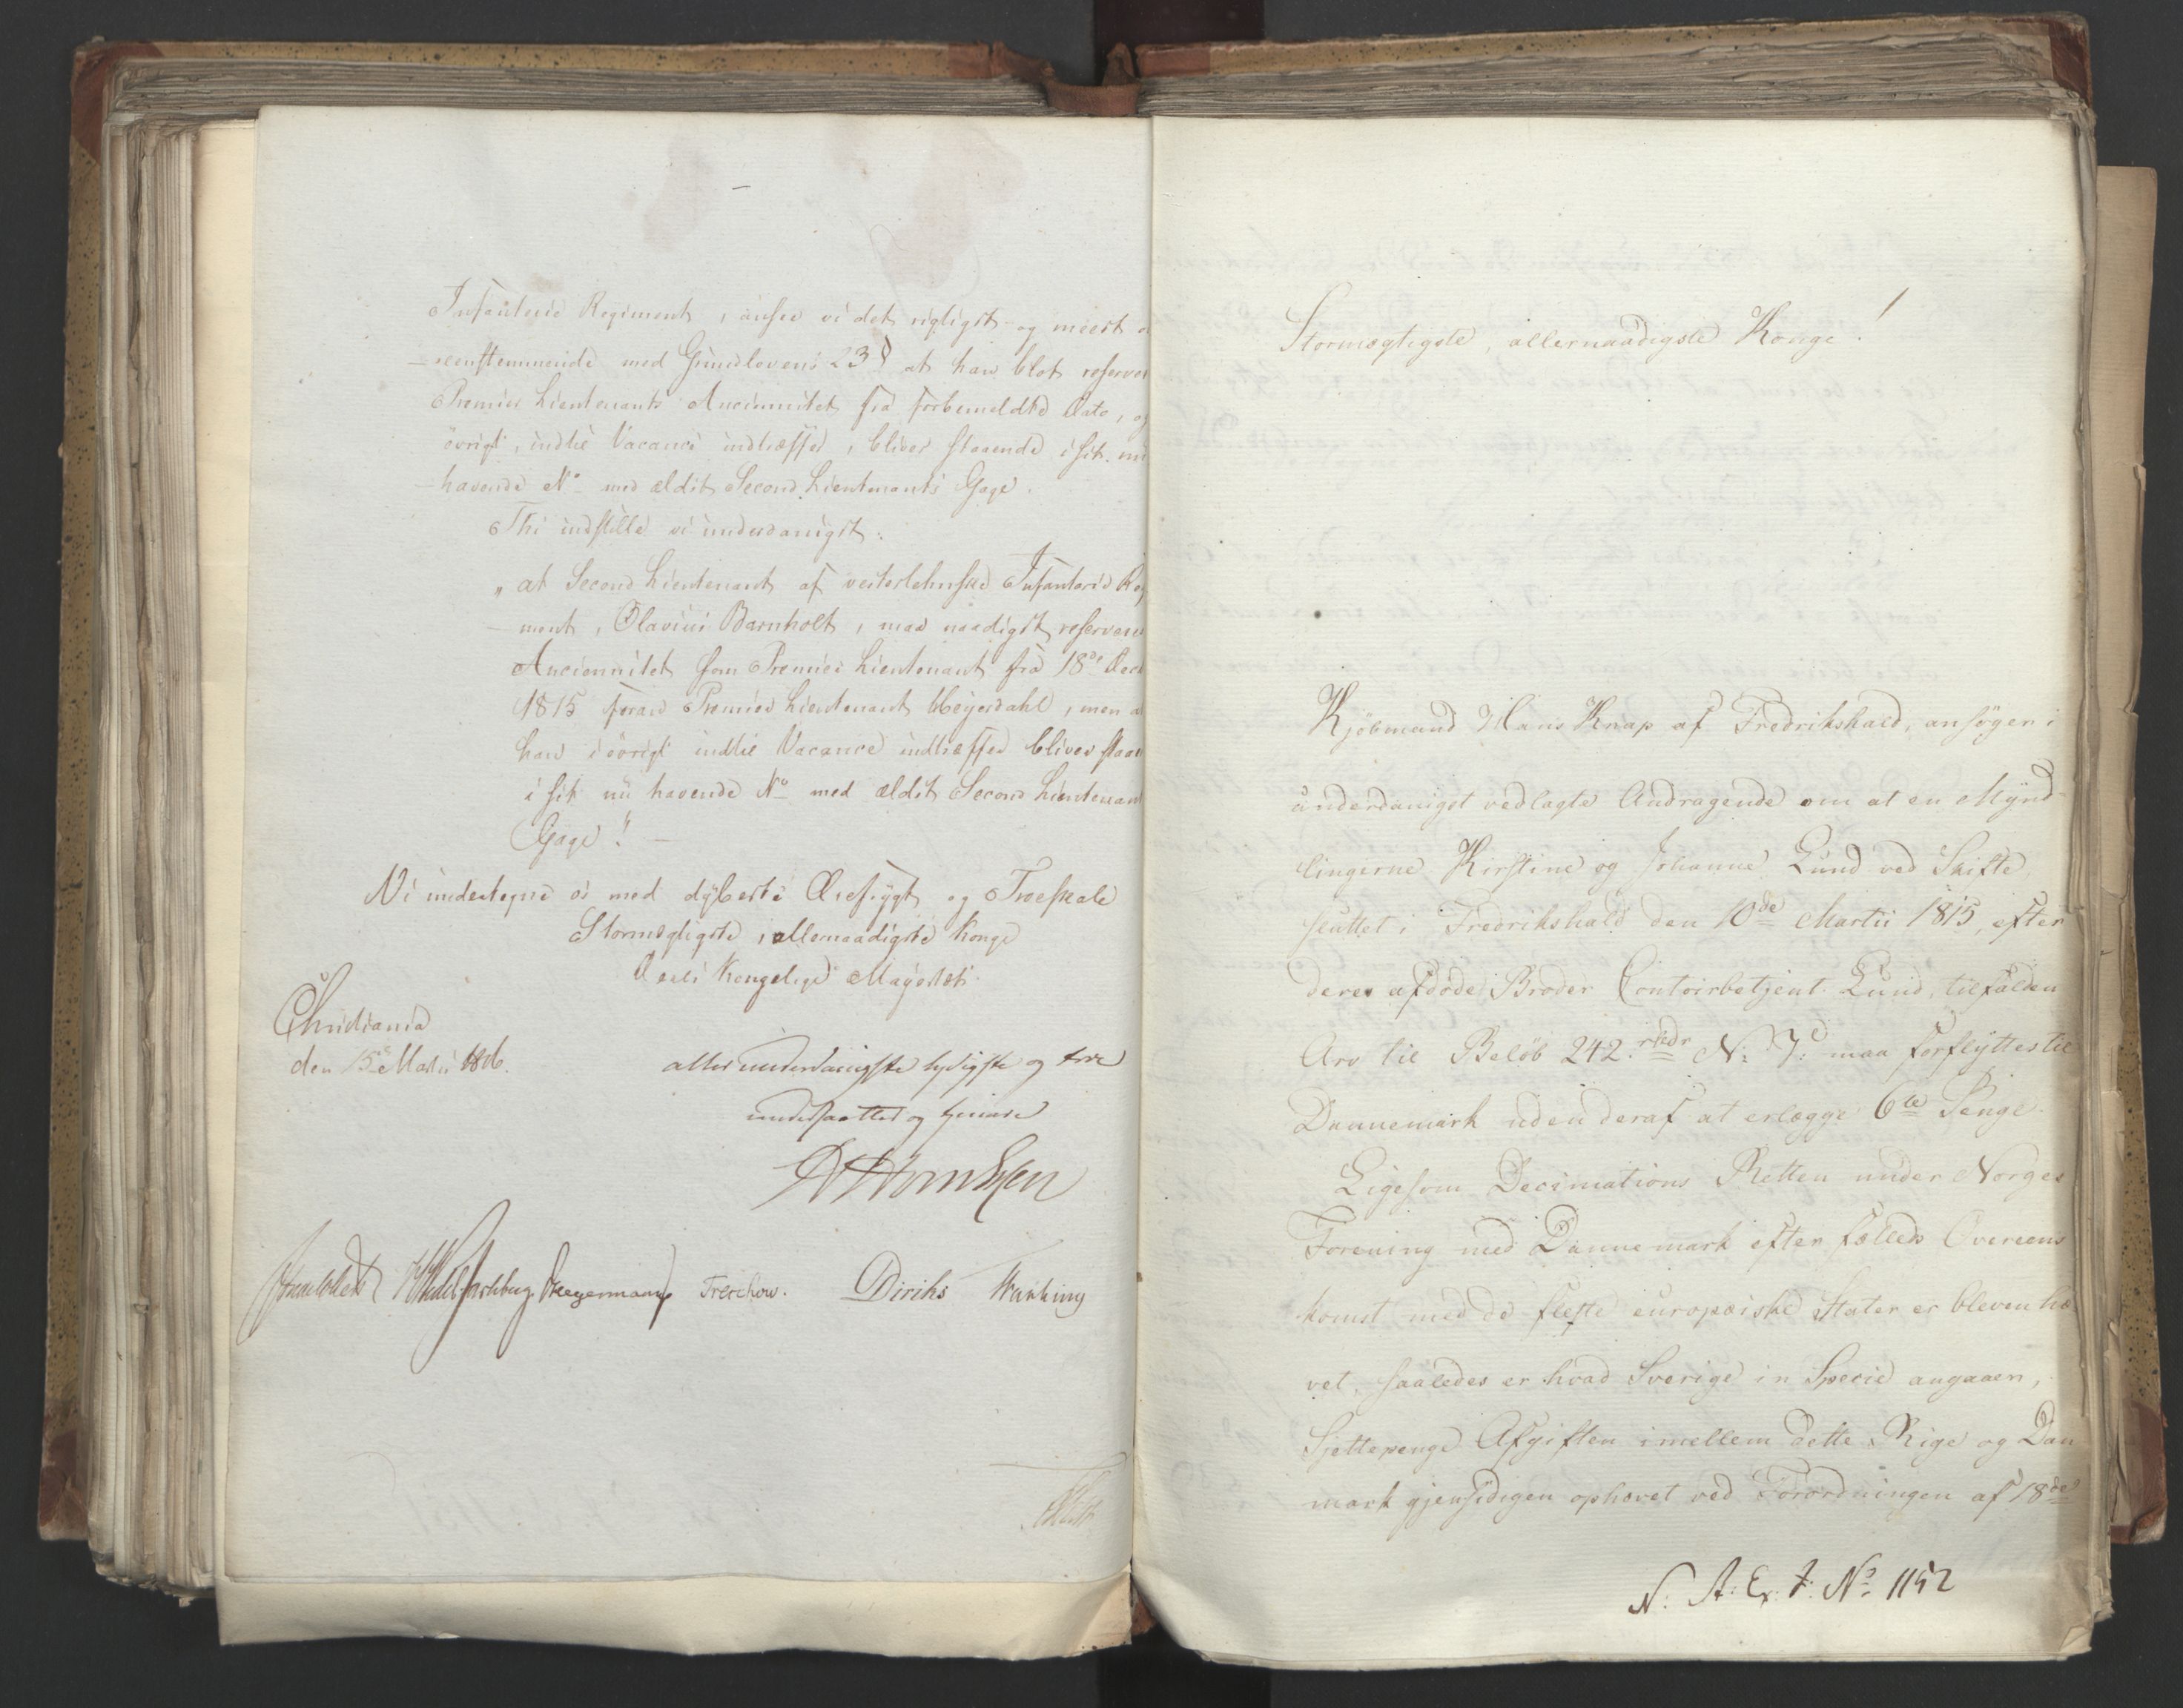 Infanterie Regiment, ansee vi det rigtigst og meest o
vereenstemmende med Grundlovens 23 § at han blot reserver
Premier Lieutenants Anciennitet fra forbemeldte Dato, og
övrigt, indtil Vacance indtræffer, bliver staaende i sit nu
havende No med ældste Second Lieutenants Gage.
Thi indstille vi underdanigst:
„at Second Lieutenant af vesterlehnske Infanterie Reg
ment, Olavius Barnholt, maa naadigst reserveres
Anciennitet som Premier Lieutenant fra 18de Dec
1815 foran Premier Lieutenant Meyerdahl, men a
han i övrigt indtil Vacance indtræffer bliver staa
i sit nu havende No med ældste Second Lieutenant
Gage".
Vi undertegne os med dybeste Ærefrygt og Troeskab
Stormægtigste, allernaadigste Konge
Deres Kongelige Majestæts
Christiania
den 15de Martii 1816.
allerunderdanigste lydigste og troe
undersaatter og tjenere
Sommerhjelm Wedel Jarlsberg Hegermann Treschow. Diriks Harbing
Stormægtigste, allernaadigste Konge!
Kjöbmand Hans Knap af Fredrikshald, ansøger i
underdanigst vedlagte Andragende om at en Mynd-
lingerne Kirstine og Johanne Lund ved Skifte
sluttet i Fredrikshald den 10de Martii 1815, efter
deres afdøde Broder Contoirbetjent Lund, tilfalden
Arv til Beløb 242 rbdr N: V: maa forflyttes til
Dannemark uden deraf at erlægge 6te Penge.
Ligesom Decimations Retten under Norges
Forening med Dannemark efter fælleds Overeens
komst med de fleste europæiske Stater er bleven hæ
vet, saaledes er hvad Sverige in Specie angaaer,
Sjettepenge Afgiften imellem dette Rige og Dan
mark gjensidigen ophævet ved Forordningen af 18de
N: A: Ex: J: No 1152